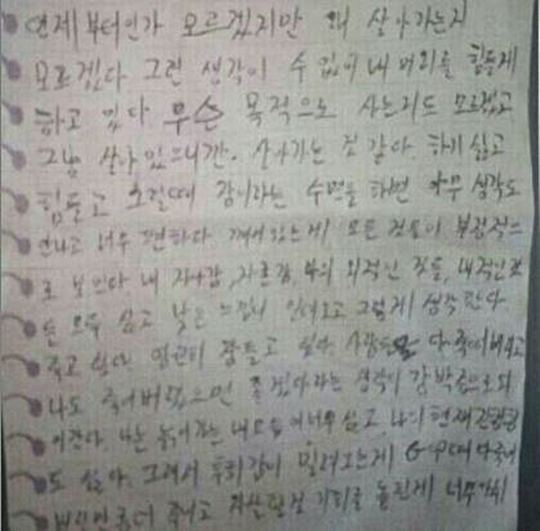 언제부터인가 모르겠지만 왜 살아가는지
모르겠다 그런 생각이 수없이 내 머리를 힘들게
하고 있다 무슨 목적으로 사는지도 모르겠고
그냥 살아있으니깐. 살아가는 것 같다. 하기 싫고
힘들고 소절때 잠이라는 수면을 하면 아무 생각도
안나고 너무 편하다 깨어있는게 모든 것들이 부정적으
로 보인다. 내 자신감, 자존감, 나의 외적인 것들, 내적인것
들 모두 싫고 낮은 느낌이 인다 그렇게 생각한다.
죽고 싶다. 영원히 잠들고 싶다. 사람들을 다 죽여버리고
나도 죽어버렸으면 좋겠다라는 생각이 강박적으로
이간다. 나는 늙어가는 내모습이 너무 싫고 나의 현재
도 싫다. 그래서 후회감이 밀려오는게 6 때
죽고 자살할 기회를 놓친게 너무